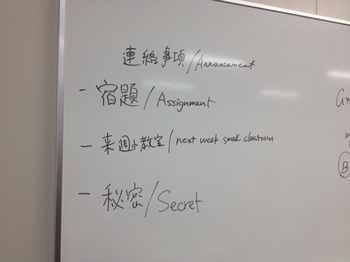 連絡事項/Anrancement
- 宿題/Assignment
- 来週小教室/next week small classroom
- 秘密/Secret
Gr
B